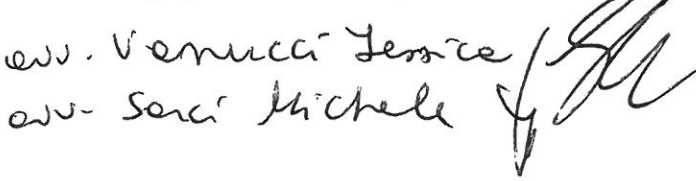 avv. Vanucci Jessica
avv. Sarci Michele